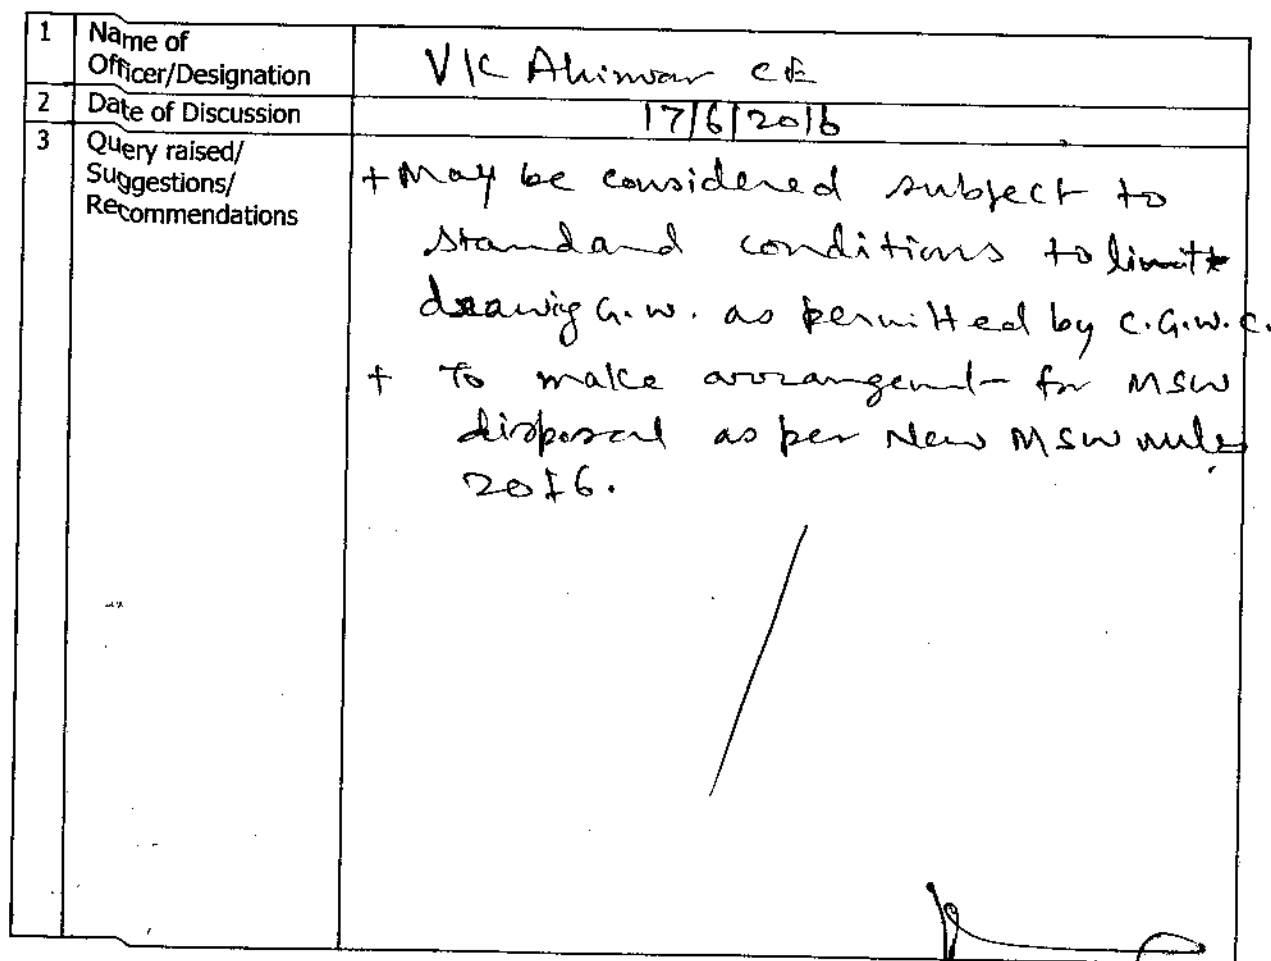 1 Name of
Officer/Designation
VK Ahirwar CE
2 Date of Discussion 17/6/2016
3 Query raised/
Suggestions/
Recommendations
+ May be considered subject to
standard conditions to limit
drawig G.W. as permitted by C.G.W.C.
+ To make arrangement for MSW
disposal as per New MSW rules
2016.